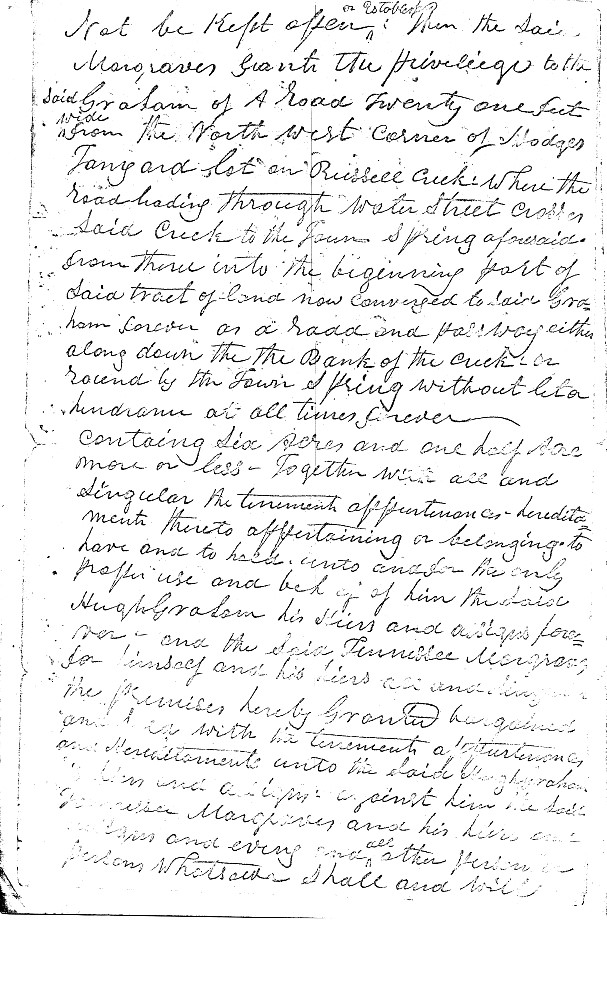 or
Not be Kept open : Then the Said
Margraves Grants the priviliege to the
Said Graham of A Road Twenty one feet
wide
from the North West Corner of Hodges
Tanyard lot on Russell Creek Where the
road leading through Water Street Crosses
Said Creek to the Town Spring aforesaid
from thence into the beginning part of
Said tract of land now conveyed to Said Gra=
ham forever as a Road and passway either
along down the the Bank of the creek or
round by the Town Spring without let or
hindrance at all times forever
containg Six Acres and one half Acre
more or less - Together with all and
Singular the tenements appurtenances heredita=
ments thereto appertaining or belonging to
have and to hold unto and for the only
proper use and behoof of him the Said
Hugh Graham his Heirs and assigns fore=
ver - and the Said Tennessee Margraves
for himself and his heirs all and Singular
the premises hereby Granted bargained
and with the tenements appurtenances
and Hereditaments unto the Said Hugh Graham
heirs and assigns against him the Said
Tennessee Margraves and his heirs and
assigns and every and all other person or
persons Whatsoever Shall and Will